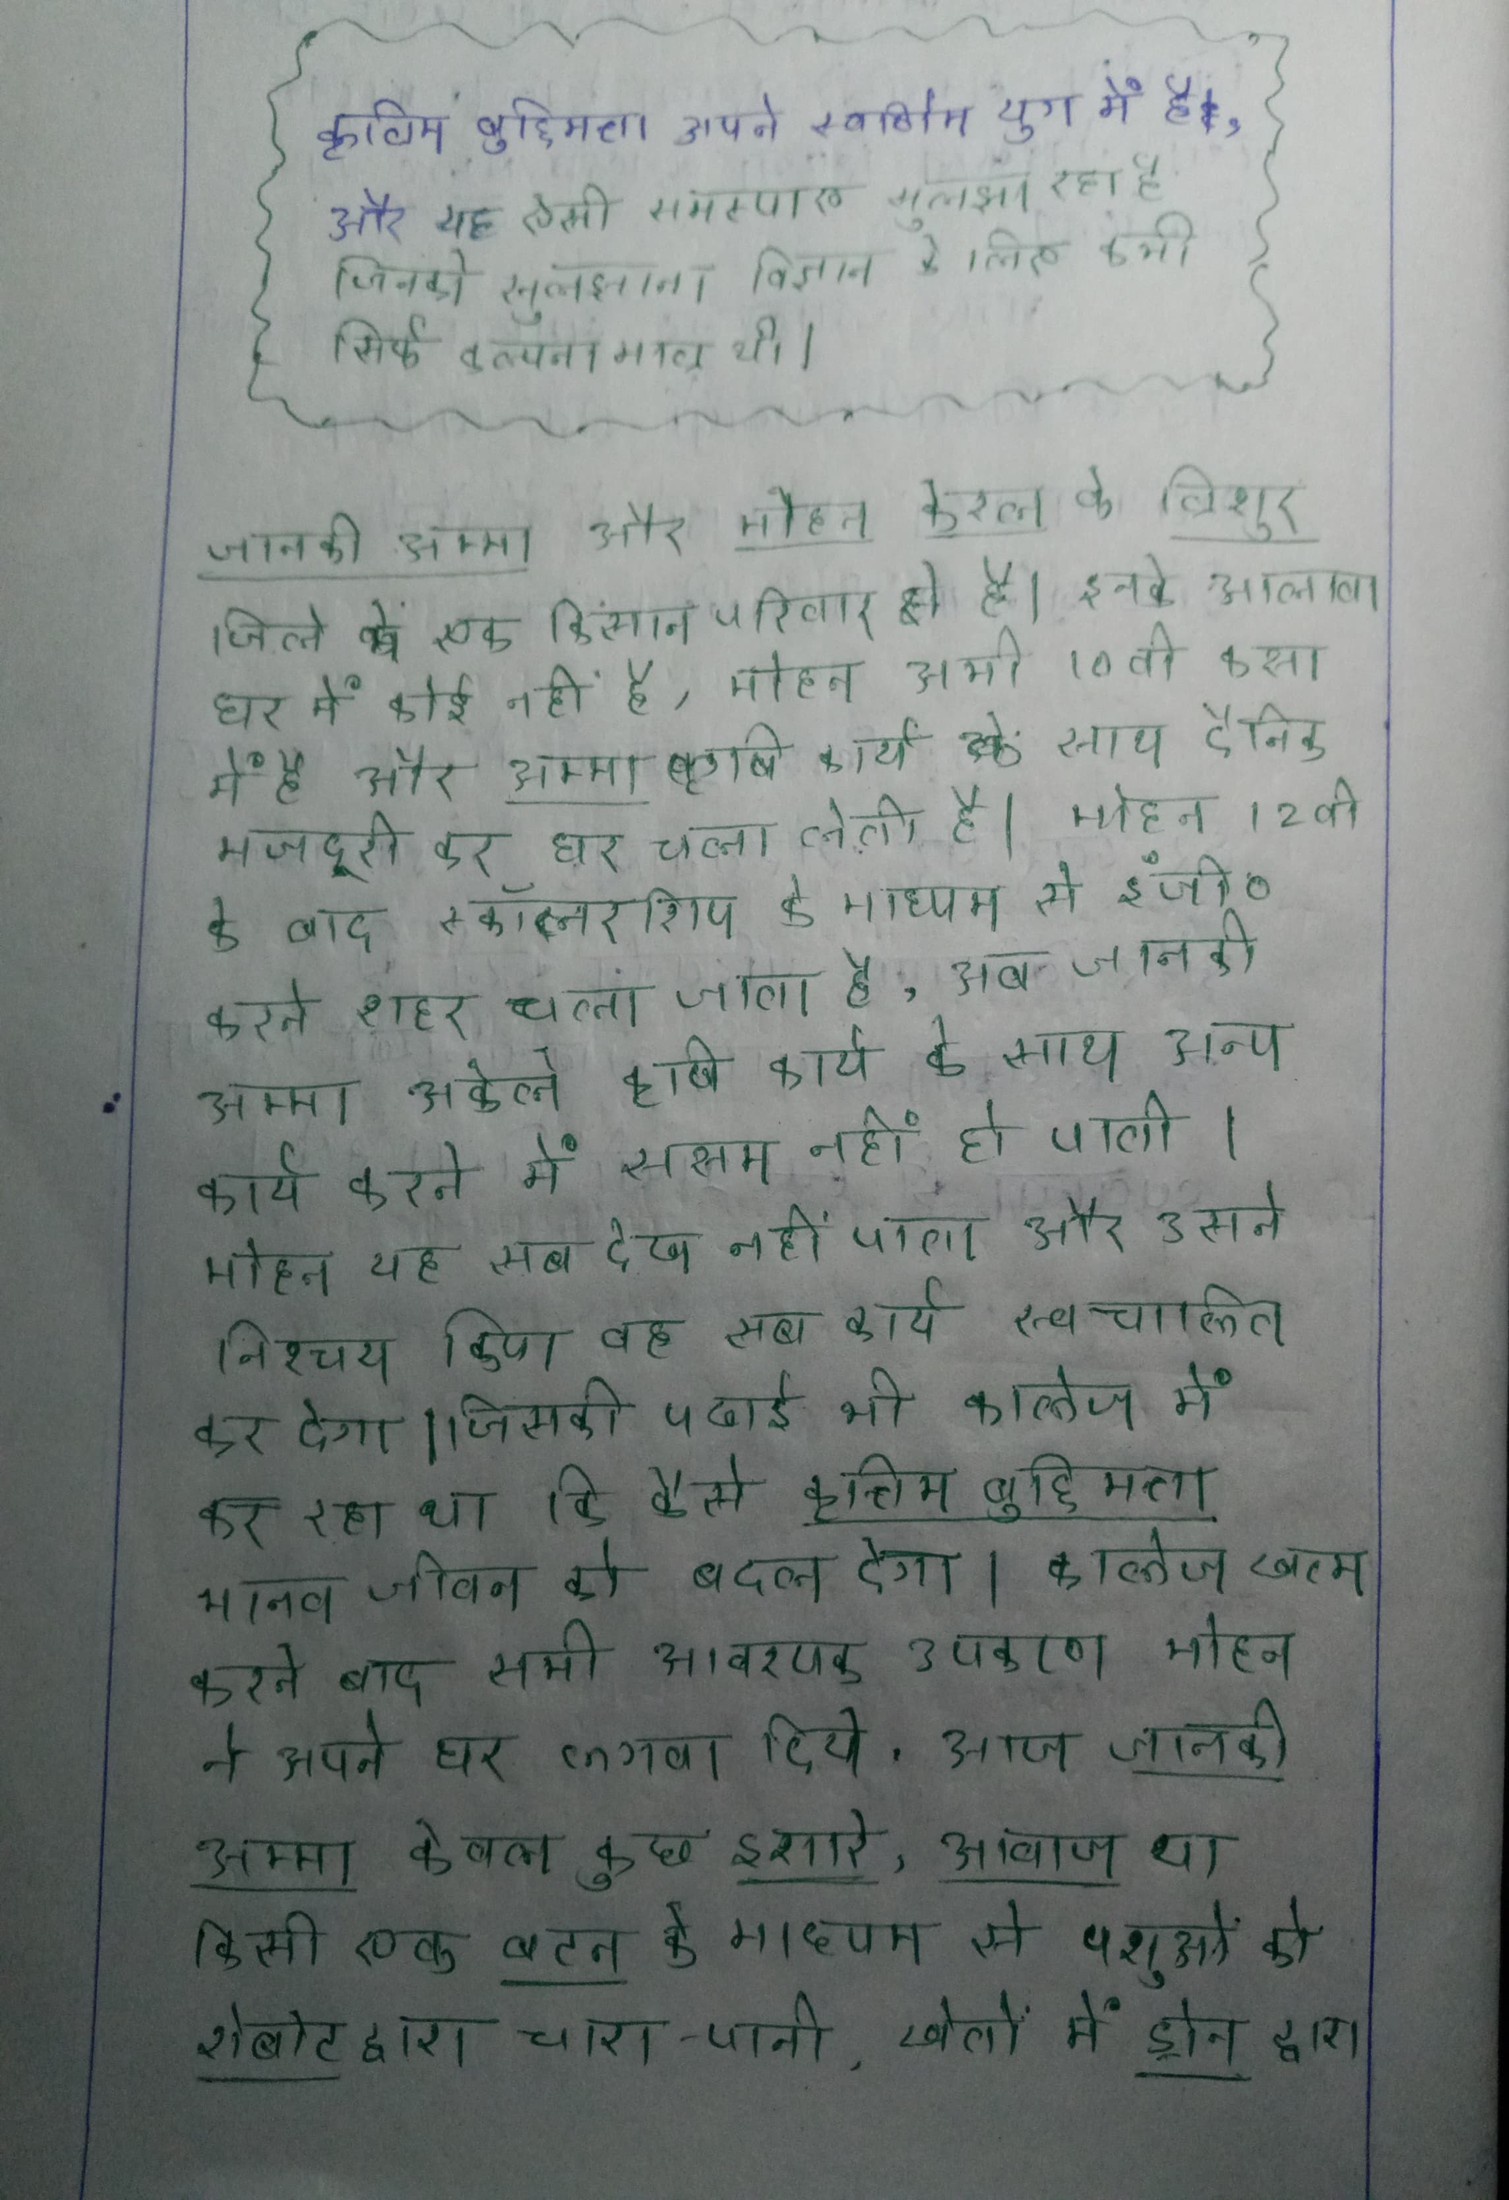 कृत्रिम बुद्धिमत्ता अपने स्वर्णिम युग में है,
और यह ऐसी समस्याएं सुलझा रहा है
जिनको सुलझाना विज्ञान के लिए कभी
सिर्फ कल्पना मात्र थी।
जानकी अम्मा और मोहन केरल के त्रिशुर
जिले के एक किसान परिवार से है। इनके आलावा
घर में कोई नहीं है, मोहन अभी 10वी कक्षा
में है और अम्मा कृषि कार्य के साथ दैनिक
मजदूरी कर घर चला लेती है। मोहन 12वी
के बाद स्कॉलरशिप के माध्यम से इंजी०
करने शहर चला जाता है, अब जानकी
अम्मा अकेले कृषि कार्य के साथ अन्य
कार्य करने में सक्षम नहीं हो पाती ।
मोहन यह सब देख नहीं पाता और उसने
निश्चय किया वह सब कार्य स्वचालित
कर देगा। जिसकी पढाई भी कालेज में
कर रहा था कि कैसे कृत्रिम बुद्धिमत्ता
मानव जीवन को बदल देगा। कालेज खत्म
करने बाद सभी आवश्यक उपकरण मोहन
ने अपने घर लगवा दिये. आज जानकी
अम्मा केवल कुछ इशारे, आवाज या
किसी एक बटन के माध्यम से पशुओं को
रोबोट द्वारा चारा-पानी, खेतों में ड्रोन द्वारा